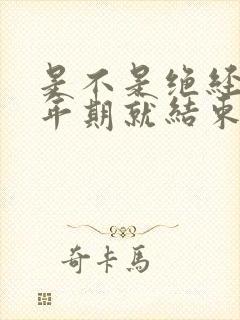 是不是绝经
年期就結束
奇卡馬